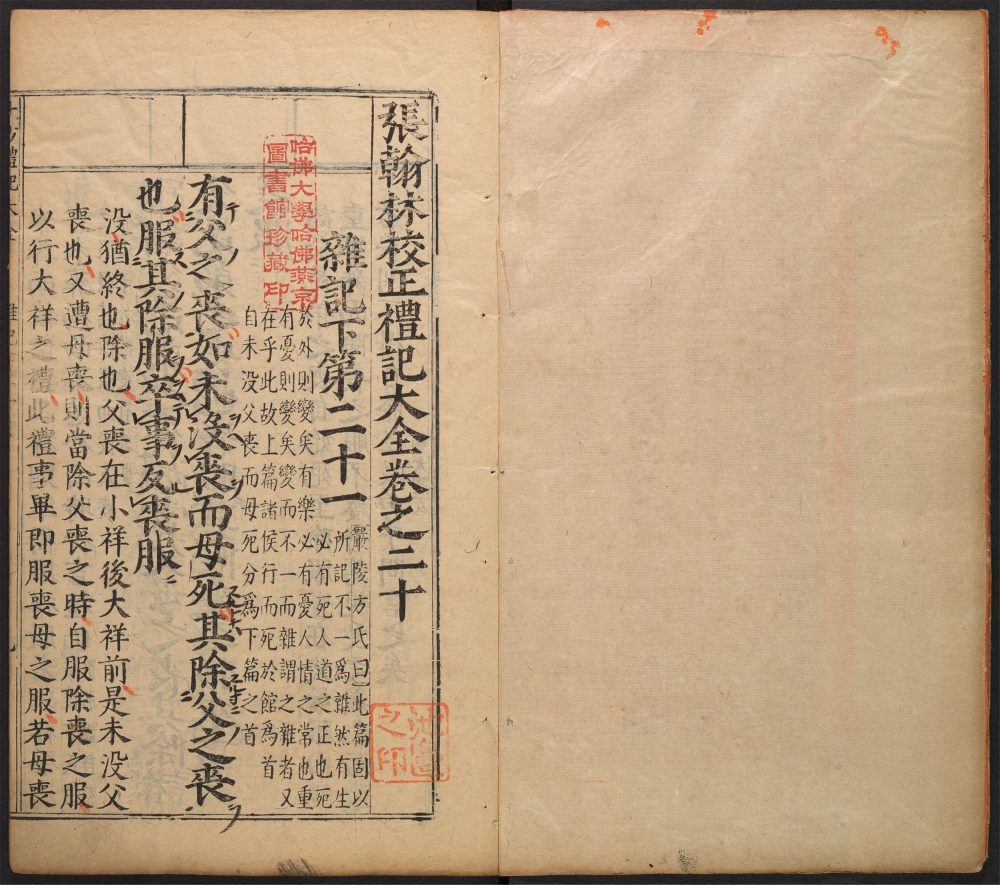 張翰林校正禮記大全卷之二十
雜記下第二十一
嚴陵方氏曰此篇固以
所記不一爲雜然有生
必有死人道之正也死
於外則變矣有樂必有憂人情之常也重
有憂則變矣變而不一而雜謂之雜者又
在乎此故上篇諸侯行而死於館爲首
自未没父喪而母死分爲下篇之首
有父之喪如未没喪而母死其除父之喪
也服其除服卒事反喪服
没猶終也除也父喪在小祥後大祥前是未没父
喪也又遭母喪則當除父喪之時自服除喪之服
以行大祥之禮此禮事畢即服喪母之服若母喪
哈佛大學哈佛燕京
圖書館珍藏印
之印